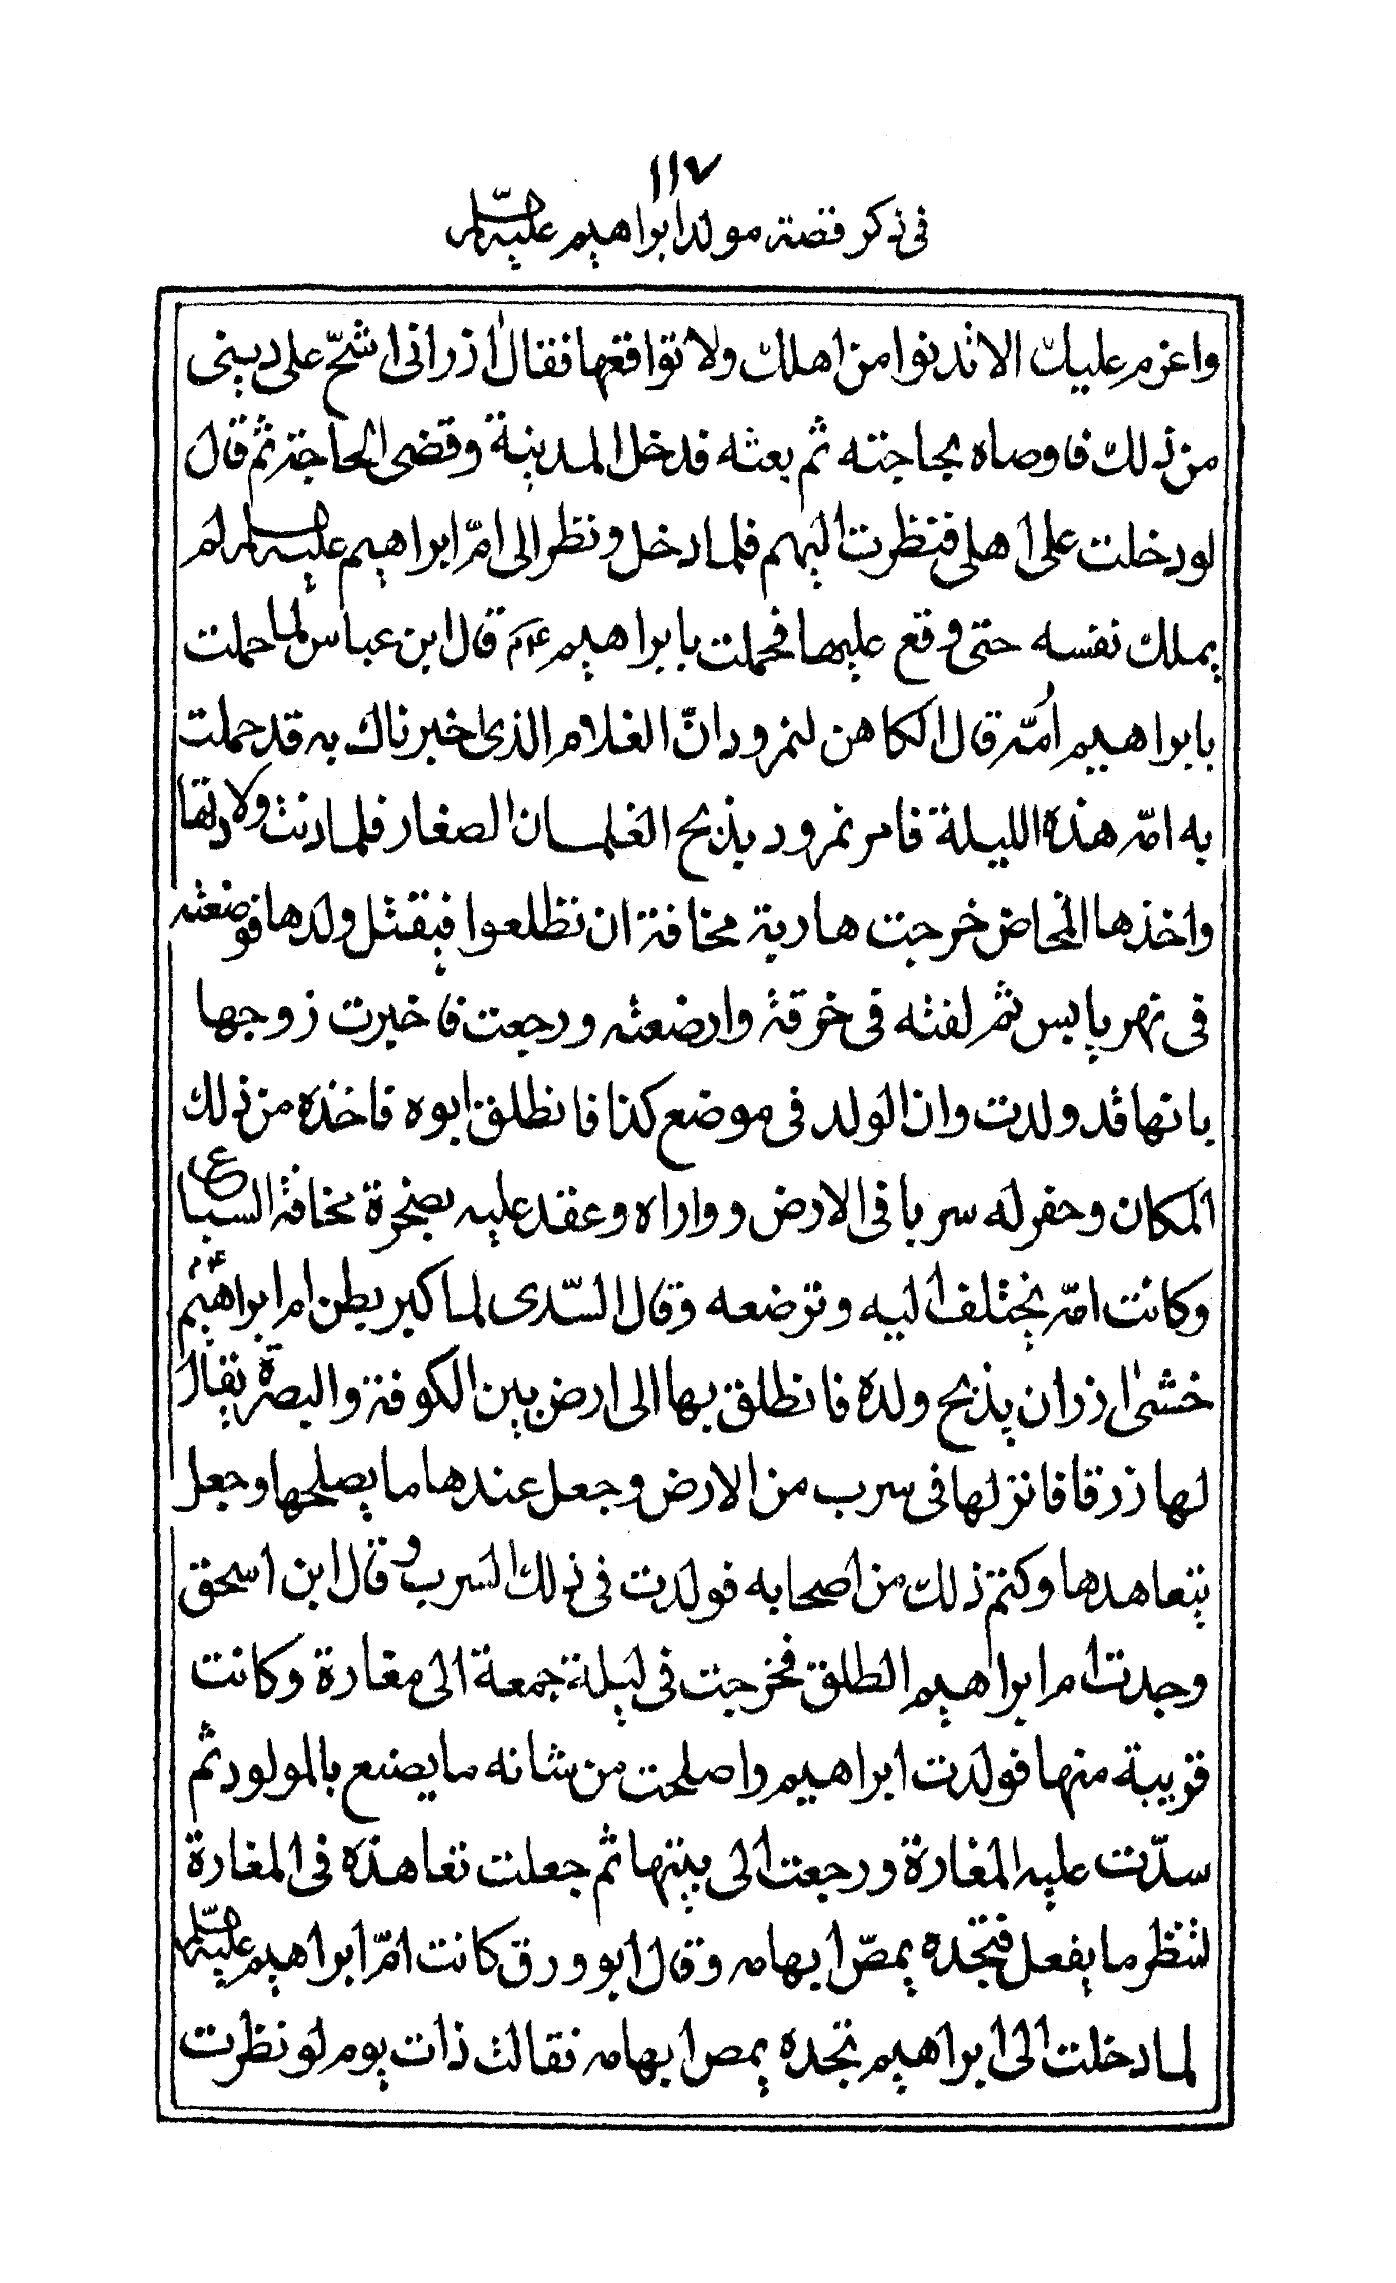 ١١٧
في ذكر قصة مولد ابراهيم عليه السلام
واعزم عليك الا تدنوا من اهلك ولا تواقعها فقال اذر اني اشحّ على ديني
من ذلك فاوصاه بحاجته ثم بعثه فدخل المدينة وقضى الحاجة ثم قال
لو دخلت على اهلي فنظرت اليهم فلما دخل ونظر الى امّ ابراهيم عليه السلام لم
يملك نفسه حتى وقع عليها فحملت بابراهيم عم قال ابن عباس لما حملت
بابراهيم اُمّه قال الكاهن لنمرود انّ الغلام الذي اخبرناك به قد حملت
به امّه هذه الليلة فامر نمرود بذبح الغلمان الصغار فلما دنت ولادتها
واخذها المخاض خرجت هاربة مخافة ان تطلعوا فيقتل ولدها فوضعته
في نهر يابس ثم لفته في خرقة وارضعته ورجعت فاخبرت زوجها
بانها قد ولدت وان الولد في موضع كذا فانطلق ابوه فاخذه من ذلك
المكان وحفر له سربا في الارض وواراه وعقد عليه بصخرة مخافة السباع
وكانت امّه يختلف اليه وترضعه وقال السّدي لما كبر بطن ام ابراهيم عم
خشى اذر ان يذبح ولده فانطلق بها الى ارض بين الكوفة والبصرة يقال
لها زرقا فانزلها في سرب من الارض وجعل عندها ما يصلحها وجعل
يتعاهدها وكتم ذلك من اصحابه فولدت في ذلك السرب وقال ابن اسحق
وجدت ام ابراهيم الطلق فخرجت في ليلة جمعة الى مغارة وكانت
قريبة منها فولدت ابراهيم واصلحت من شانه ما يصنع بالمولود ثم
سدّت عليه المغارة ورجعت الى بيتها ثم جعلت تعاهده في المغارة
لتنظر ما يفعل فتجده يمصّ ابهامه وقال ابو ورق كانت امّ ابراهيم عليه السلام
لما دخلت الى ابراهيم تجده يمص ابهامه نقالت ذات يوم لو نظرت